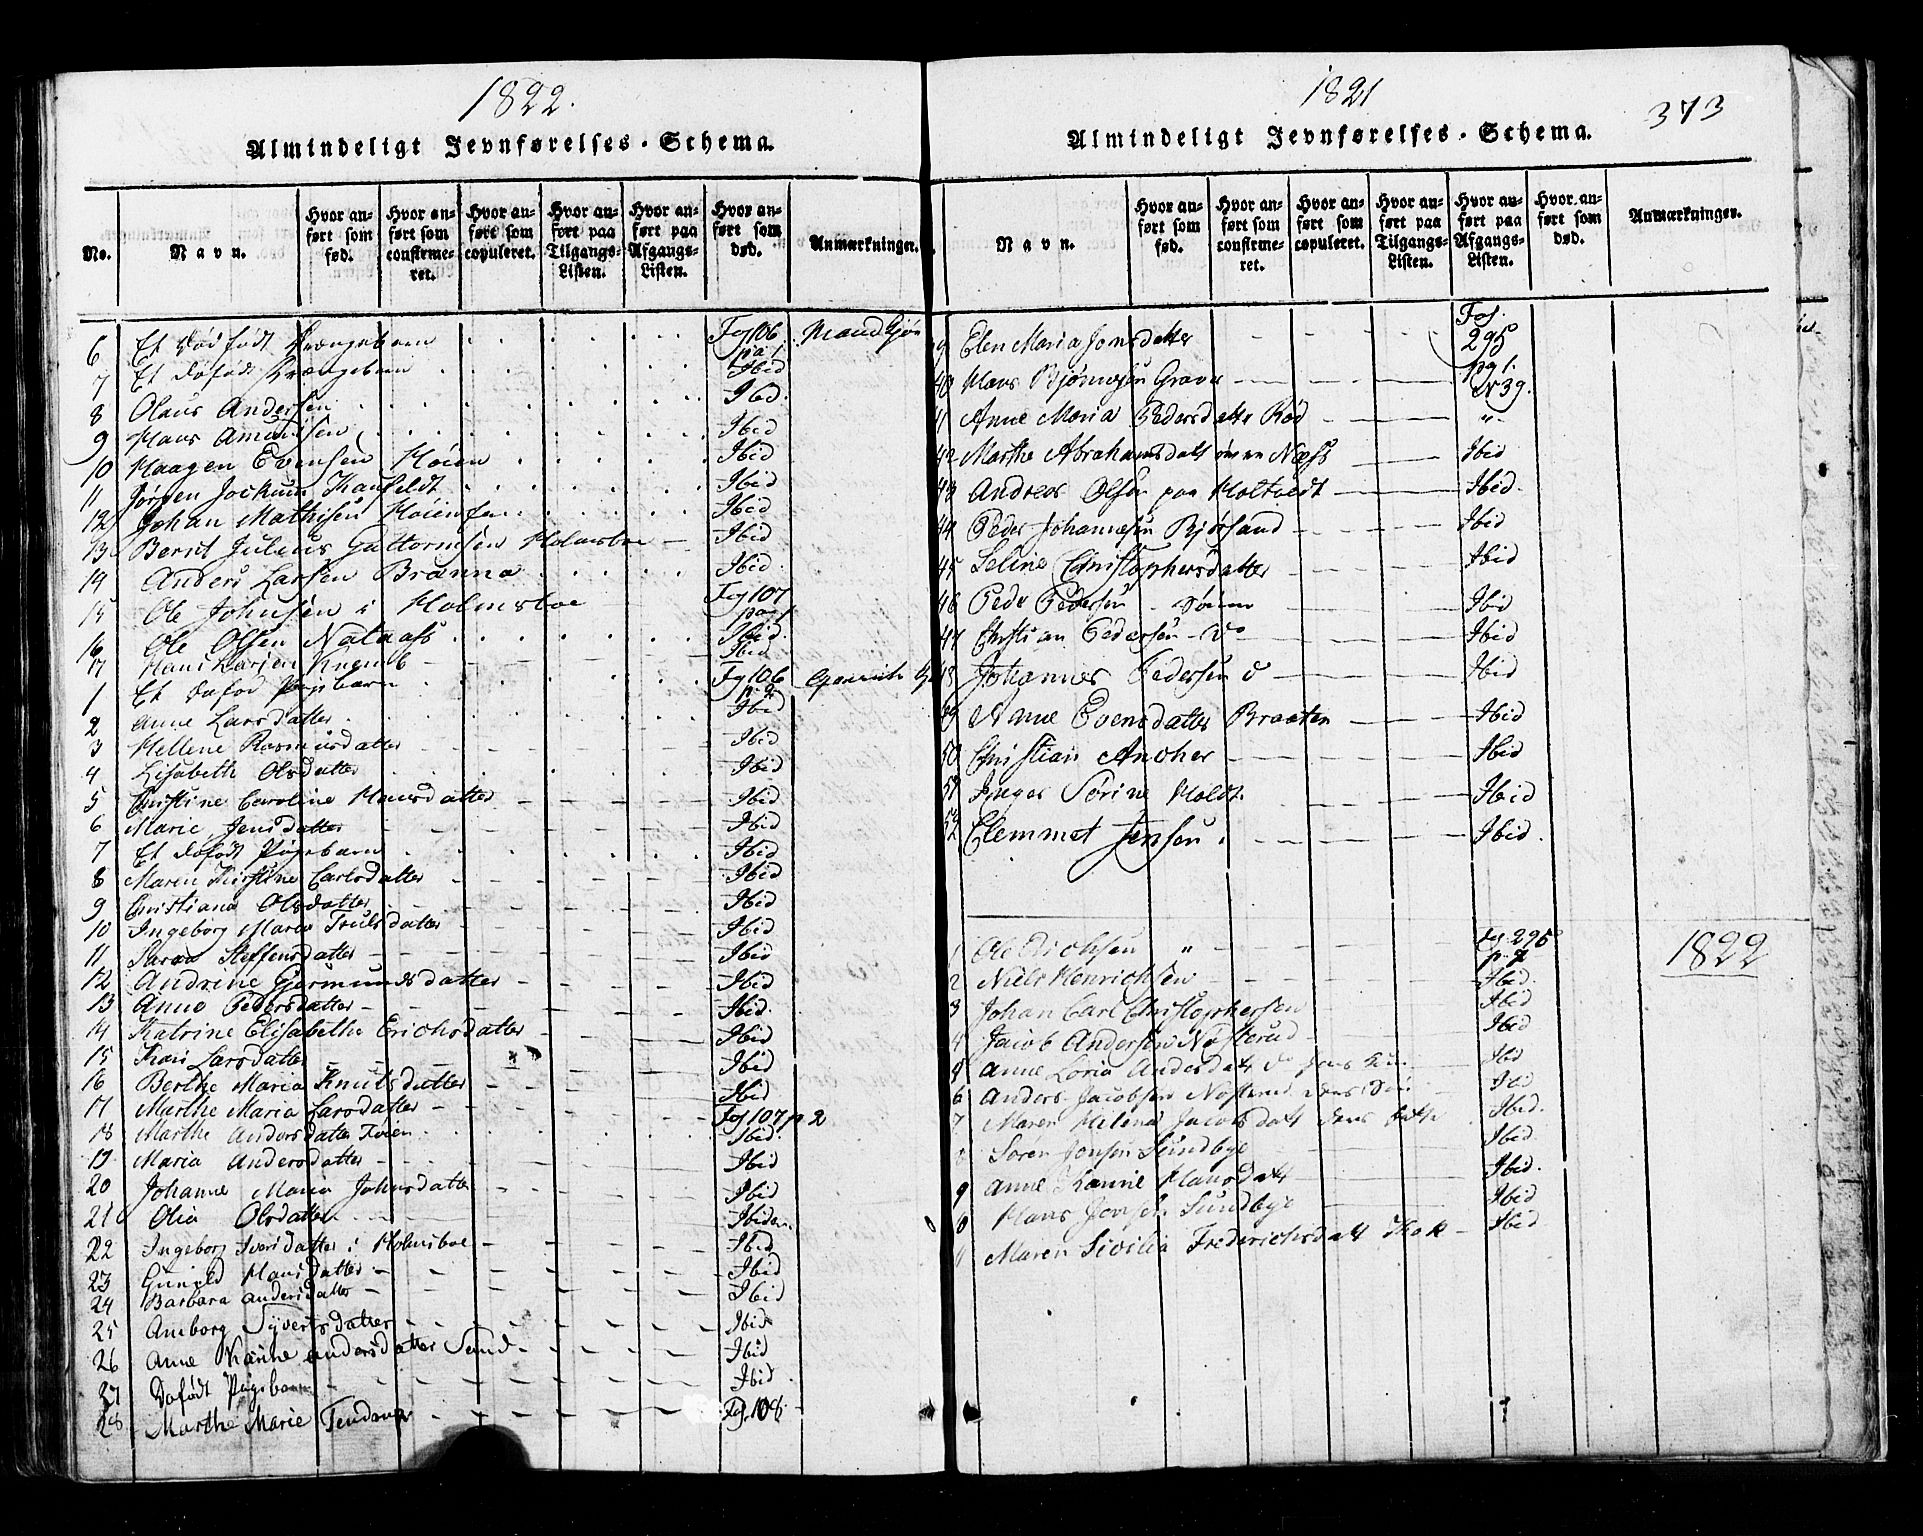 1822.
Almindeligt Jevnførelses-Schema.
No.
Navn.
Hvor anført som fød.
Hvor anført som confirmeret.
Hvor anført som copuleret.
Hvor anført paa Tilgangs-Listen.
Hvor anført paa Afgangs-Listen.
Hvor anført som død.
Anmærkninger.
6 Et Dødfødt Drængebarn Fol 106 pa 1 Mandkjøn
7 Et døfødt Drængebarn Ibid
8 Olaus Andersen Ibd.
9 Hans Amundsen Ibid
10 Haagen Evensen Høien Ibid
11 Jørgen Jochum Kanfeldt Ibid
12 Johan Mathisen Høiensen Ibid
13 Bernt Julius Guttormsen Holmsboe Ibid
14 Anders Larsen Brænna Ibid
15 Ole Johnsen i Holmsboe Fol 107 pag 1
16 Ole Olsen Natnæss Ibid
17 Hans Larsen Knem Ibid
1 Et Døfød Pigebarn Fol 106 p. 2
2 Anne Larsdatter Ibid
3 Hellene Rasmusdatter Ibid
4 Lisabeth Olsdatter Ibid
5 Christine Caroline Hansdatter Ibid
6 Marie Jensdatter Ibid
7 Et døfødt Pigebarn Ibid
8 Maren Kirstine Carlsdatter Ibid
9 Christiana Olsdatter Ibid
10 Ingeborg Maria Trulsdatter Ibid
11 Sara Steffensdatter Ibid
12 Andrine Gjermundsdatter Ibid
13 Anne Pedersdatter Ibid
14 Katrine Elisabethe Erichsdatter Ibid
15 Kari Larsdatter Ibid
16 Berthe Maria Knutsdatter Ibid
17 Marthe Maria Larsdatter Fol 107 p 2
18 Marthe Andersdatter Tveien Ibid
19 Maria Andersdatter Ibid
20 Johanne Maria Johnsdatter Ibid
21 Olia Olsdatter Ibidem
22 Ingeborg Iversdatter i Holmsboe Ibid
23 Gunild Hansdatter Ibid
24 Barbara Andersdatter Ibid
25 Anborg Syvertsdatter Ibid
26 Anne Karine Andersdatter Sand Ibid
27 Døfødt Pigebarn Ibid
28 Marthe Marie Fol. 108
1821
373
Almindeligt Jevnførelses-Schema.
Navn.
Hvor anført som fød.
Hvor anført som confirmeret.
Hvor anført som copuleret.
Hvor anført paa Tilgangs-Listen.
Hvor anført paa Afgangs-Listen.
Hvor anført som død.
Anmærkninger.
9 Elen Maria Jonsdatter Fol. 295
40 Hans Bjørnesen Graver pg 1. N 39.
41 Anne Maria Pedersdatter Rød "
42 Marthe Abrahamsdatt øvre Næss Ibid
43 Andreas Olsen paa Holtvedt Ibid.
44 Peder Johannesen Bjørsand Ibid
45 Seline Christophersdatter Ibid
46 Peder Pedersen Ibid
47 Christian Pedersen - do Ibid
48 Johannes Pedersen d Ibid
49 Anne Evensdatter Braaten Ibid
50 Christian Ancher Ibid
51 Inger Sørine Holdt Ibid
52 Clemmet Jensen Ibid.
1822
1 Ole Erichsen " Fol 295 p. 2
2 Niels Henrichsen Ibid.
3 Johan Carl Christophersen Ibid
4 Jacob Andersen Nøsterud Ibid
5 Anne Loria Andersdatt d hans Kone Ibd
6 Anders Jacobsen Nøsterud Ibid
7 Maren Helena Jacobsdatt Ibid.
8 Søren Jensen Sundbye Ibid
9 Anne Karine Hansdatt Ibid.
0 Hans Jensen Sundbye Ibid
11 Maren Sicilia Frederichsdatt Ibid